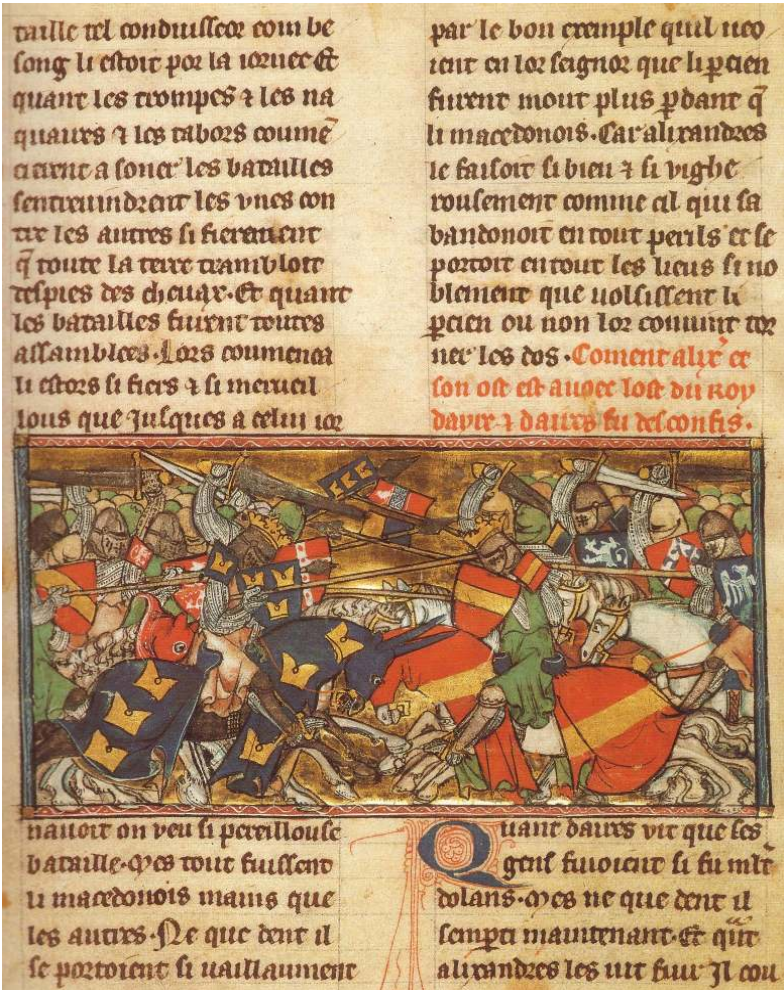 taille tel conduisseor com be
song li estoit por la iornee Et
quant les trompes ⁊ les na
quaires ⁊ les tabors coumē
cierent a soner les batailles
sentreuindrent les vnes con
tre les autres si fierement
q̄ toute la terre trambloit
des pies des cheuax. Et quant
les batailles furent toutes
assamblees. Lors coumenca
li estors si fiers ⁊ si merueil
lous que Jusques a celui ior
nauoit on veu si pereillouse
bataille. Mes tout fuissent
li macedonois mains que
les autres. Ne que dent il
se portoient si uaillaument
par le bon exemple quil ueo
ient en lor seignor que li ꝑcien
furent mout plus ꝑdant q̄
li macedonois. Car alixandres
le faisoit si bien ⁊ si vighe
rousement comme cil qui sa
bandonoit en tout perils et se
portoit en tout les lieus si no
blement que uolsissent li
ꝑcien ou non lor conuint tor
ner les dos. Coment alix̄ et
son ost est auoec lost du Roy
dayre ⁊ daires fu desconfis.
Quant daires vit que ses
gens fuioient si fu ml̄t
dolans. Mes ne que dent il
semparti maintenant. Et qu̅nt
alixandres les uit fuir Il cou